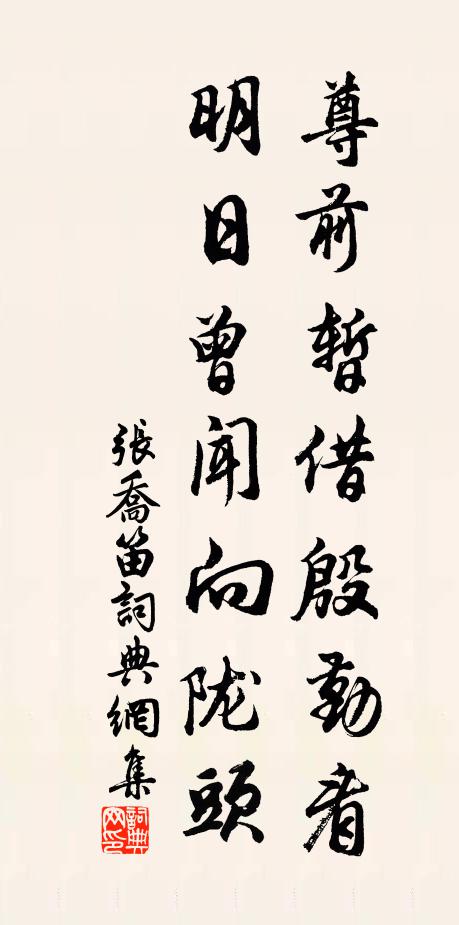 尊前暫借殷勤看
明日曾聞向陇頭
張喬笛詞典網集
詞典网印